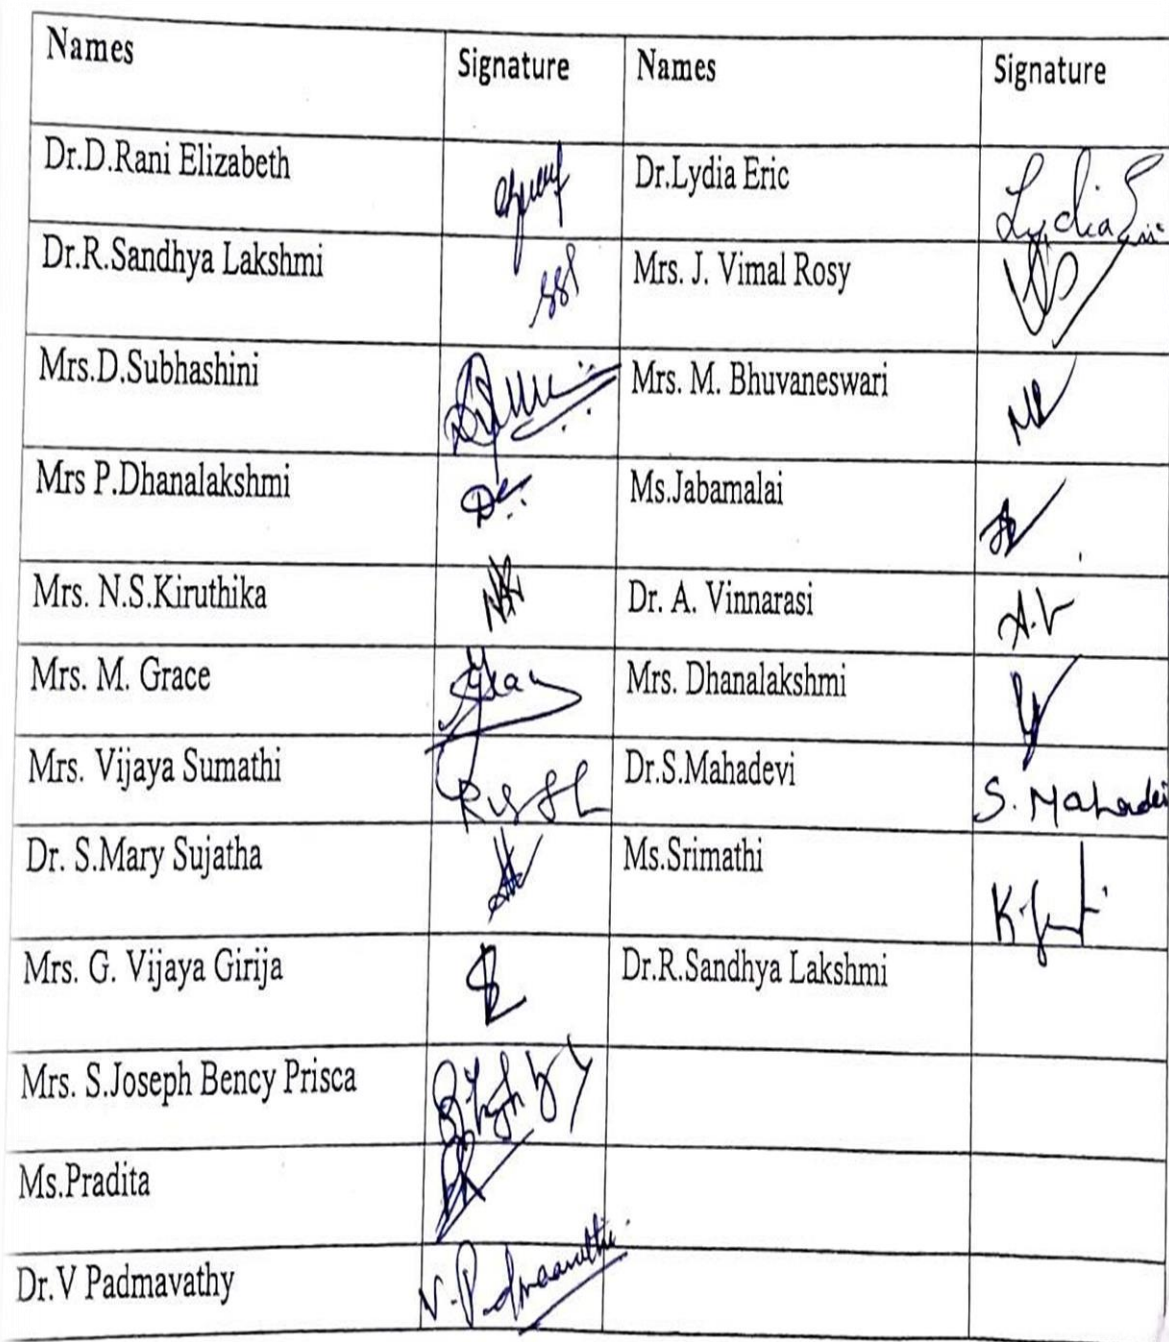 Names Signature Names Signature
Dr.D.Rani Elizabeth Dr.Lydia Eric Lydia Eric
Dr.R.Sandhya Lakshmi SSl Mrs. J. Vimal Rosy
Mrs.D.Subhashini Mrs. M. Bhuvaneswari
Mrs P.Dhanalakshmi Ms.Jabamalai
Mrs. N.S.Kiruthika Dr. A. Vinnarasi A.V
Mrs. M. Grace Mrs. Dhanalakshmi
Mrs. Vijaya Sumathi Dr.S.Mahadevi S. Mahadevi
Dr. S.Mary Sujatha Ms.Srimathi
Mrs. G. Vijaya Girija Dr.R.Sandhya Lakshmi
Mrs. S.Joseph Bency Prisca
Ms.Pradita
Dr.V Padmavathy V.Padmaavathi